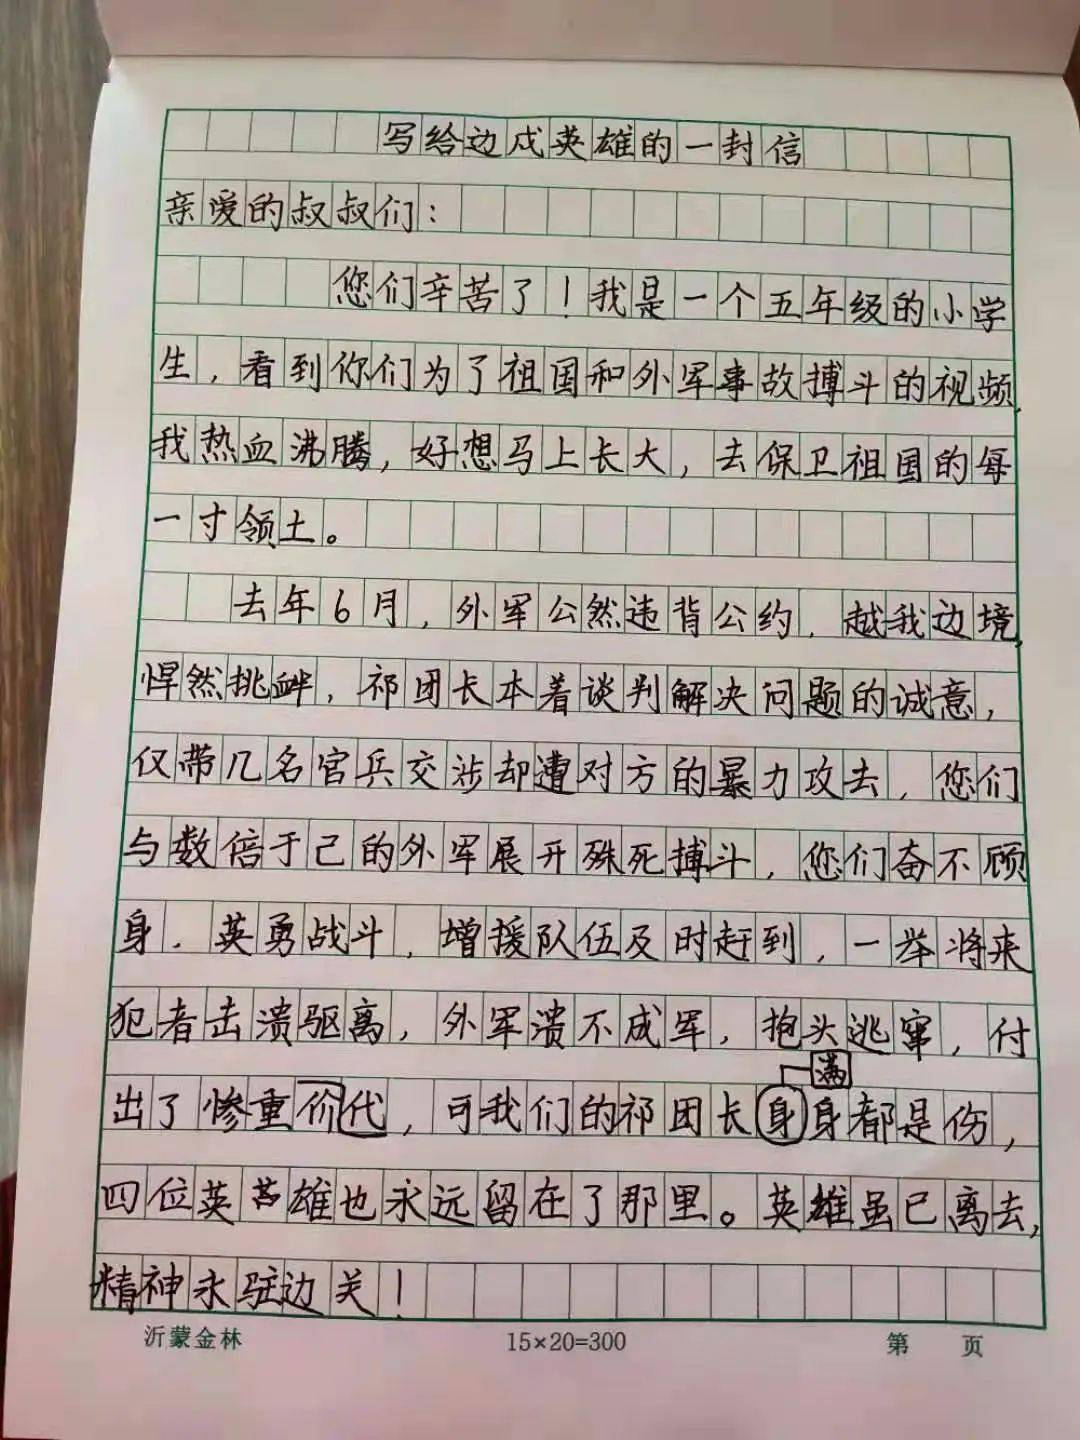 写给边戍英雄的一封信
亲爱的叔叔们：
您们辛苦了！我是一个五年级的小学
生，看到你们为了祖国和外军事故搏斗的视频，
我热血沸腾，好想马上长大，去保卫祖国的每
一寸领土。
去年6月，外军公然违背公约，越我边境，
悍然挑衅，祁团长本着谈判解决问题的诚意，
仅带几名官兵交涉却遭对方的暴力攻去，您们
与数倍于己的外军展开殊死搏斗，您们奋不顾
身，英勇战斗，增援队伍及时赶到，一举将来
犯者击溃驱离，外军溃不成军，抱头逃窜，付
满
出了惨重价代，可我们的祁团长身身都是伤，
四位英雄也永远留在了那里。英雄虽已离去，
精神永驻边关！
沂蒙金林
15×20=300
第 页